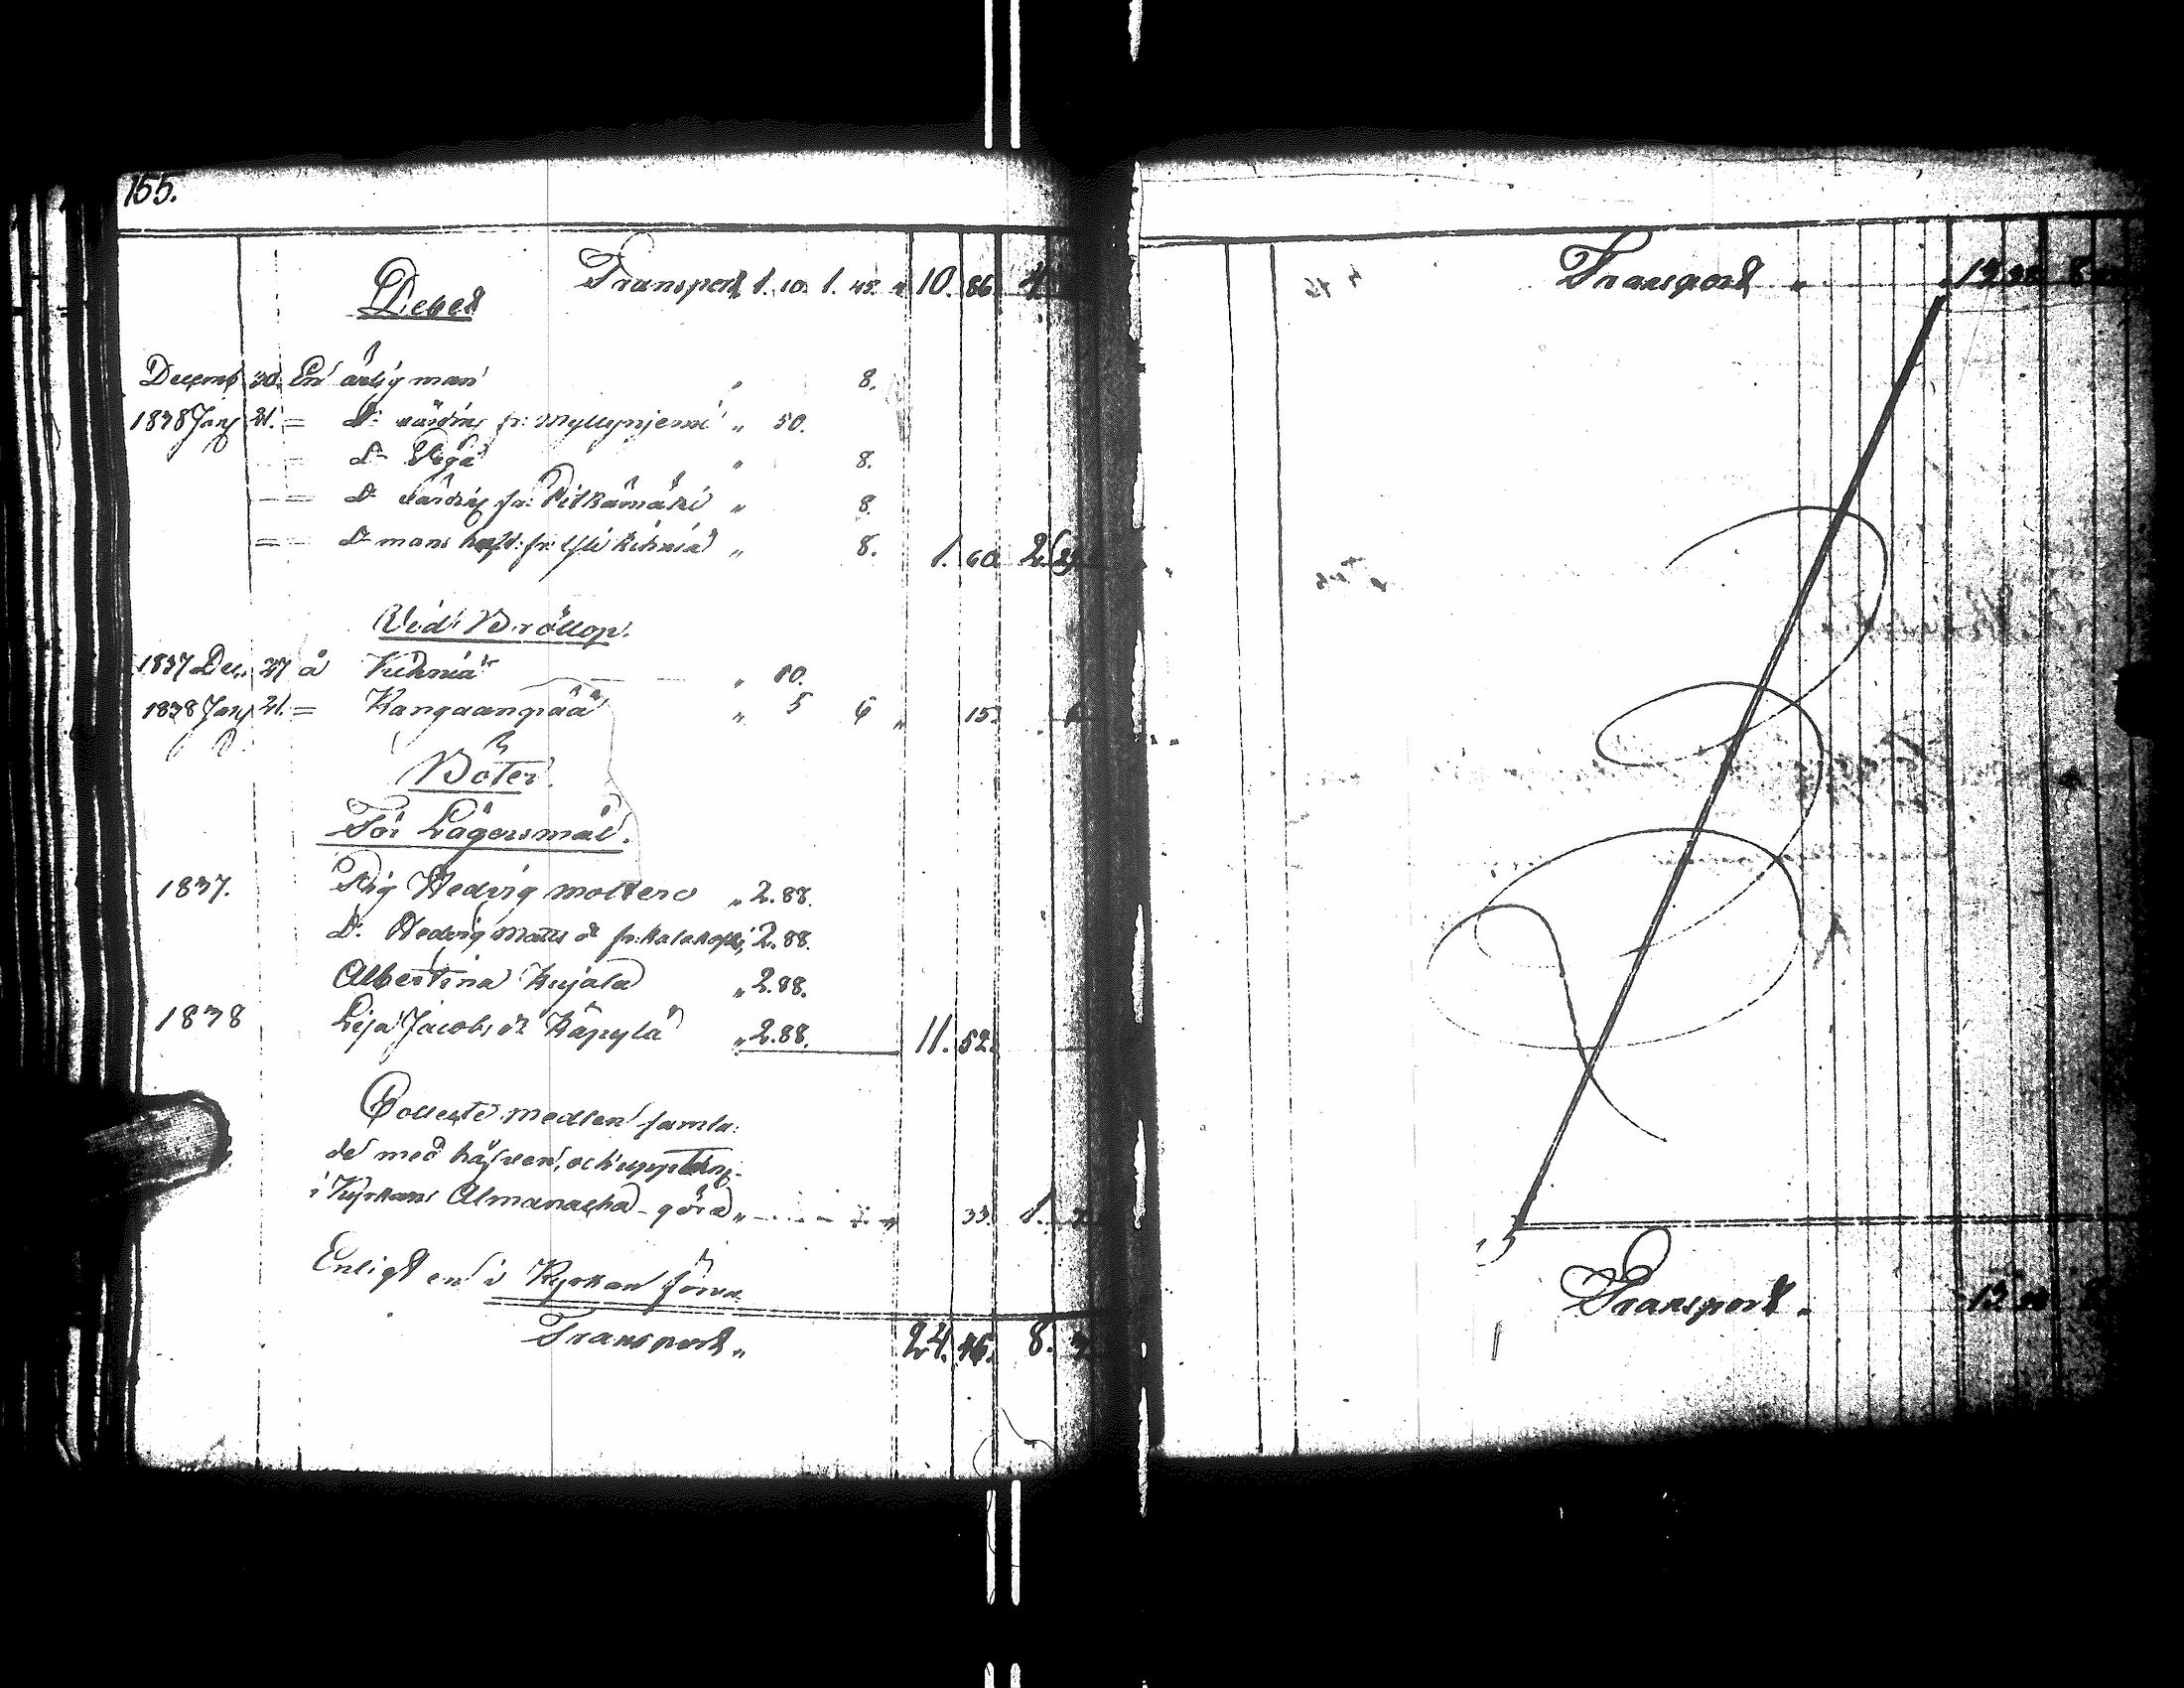 155.
Debet Transport 1. 10. 1. 48. " 10. 86. 4
Decemb 30. En ärlig man " 8.
1838 Janj 21. = Do värdinj fr: Myllynjemi " 50.
= Do " 8.
= Do värdinj fr: Pitkämäki " 8.
= Do mans hust: fr: Yli Kihniä " 8. 1. 60. 2.
Vid Bröllop.
1837 Dec. 27 å Kihniä " 10.
1838 Janj 21. = Kangaanpää " 5 6 " 15.
Böter.
För Lägersmål.
1837. Pig Hedvig Moltero " 2.88.
Do Hedvig Matts dr fr: " 2.88.
Albertina Kujala " 2.88.
1838 Lisa Jacobs dr Käpylä " 2.88. 11. 52.
Collecte medlen samla:
de med håfven, och
i Kyrkans Almanacka göra " 33. 1.
Enligt en i Kyrkan förva:
Transport " 24. 46. 8.
Transport " 8
Transport "